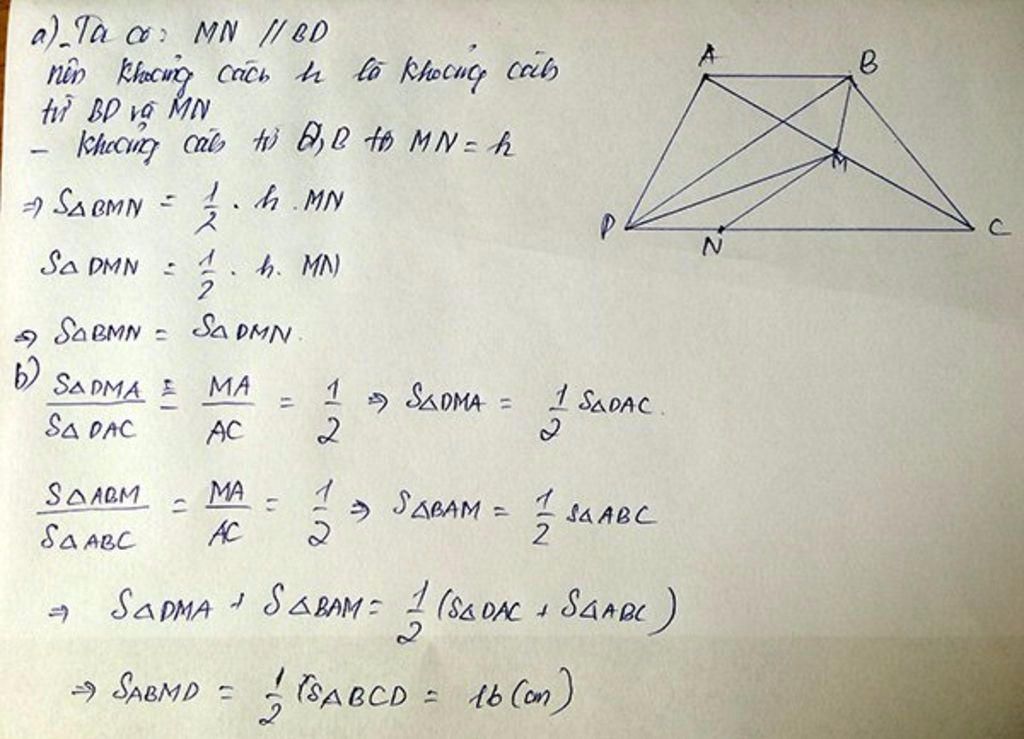 a) - Ta có: MN // BD
nên khoảng cách h là khoảng cách
từ BD và MN
- khoảng cách từ D, B tới MN = h
⇒ S△BMN = 1/2 . h . MN
S△DMN = 1/2 . h . MN
⇒ S△BMN = S△DMN.
b) S△DMA / S△DAC = MA / AC = 1/2 ⇒ S△DMA = 1/2 S△DAC.
S△ABM / S△ABC = MA / AC = 1/2 ⇒ S△BAM = 1/2 S△ABC
⇒ S△DMA + S△BAM = 1/2 (S△DAC + S△ABC)
⇒ SABMD = 1/2 SABCD = 16 (cm)
A
B
M
D
N
C